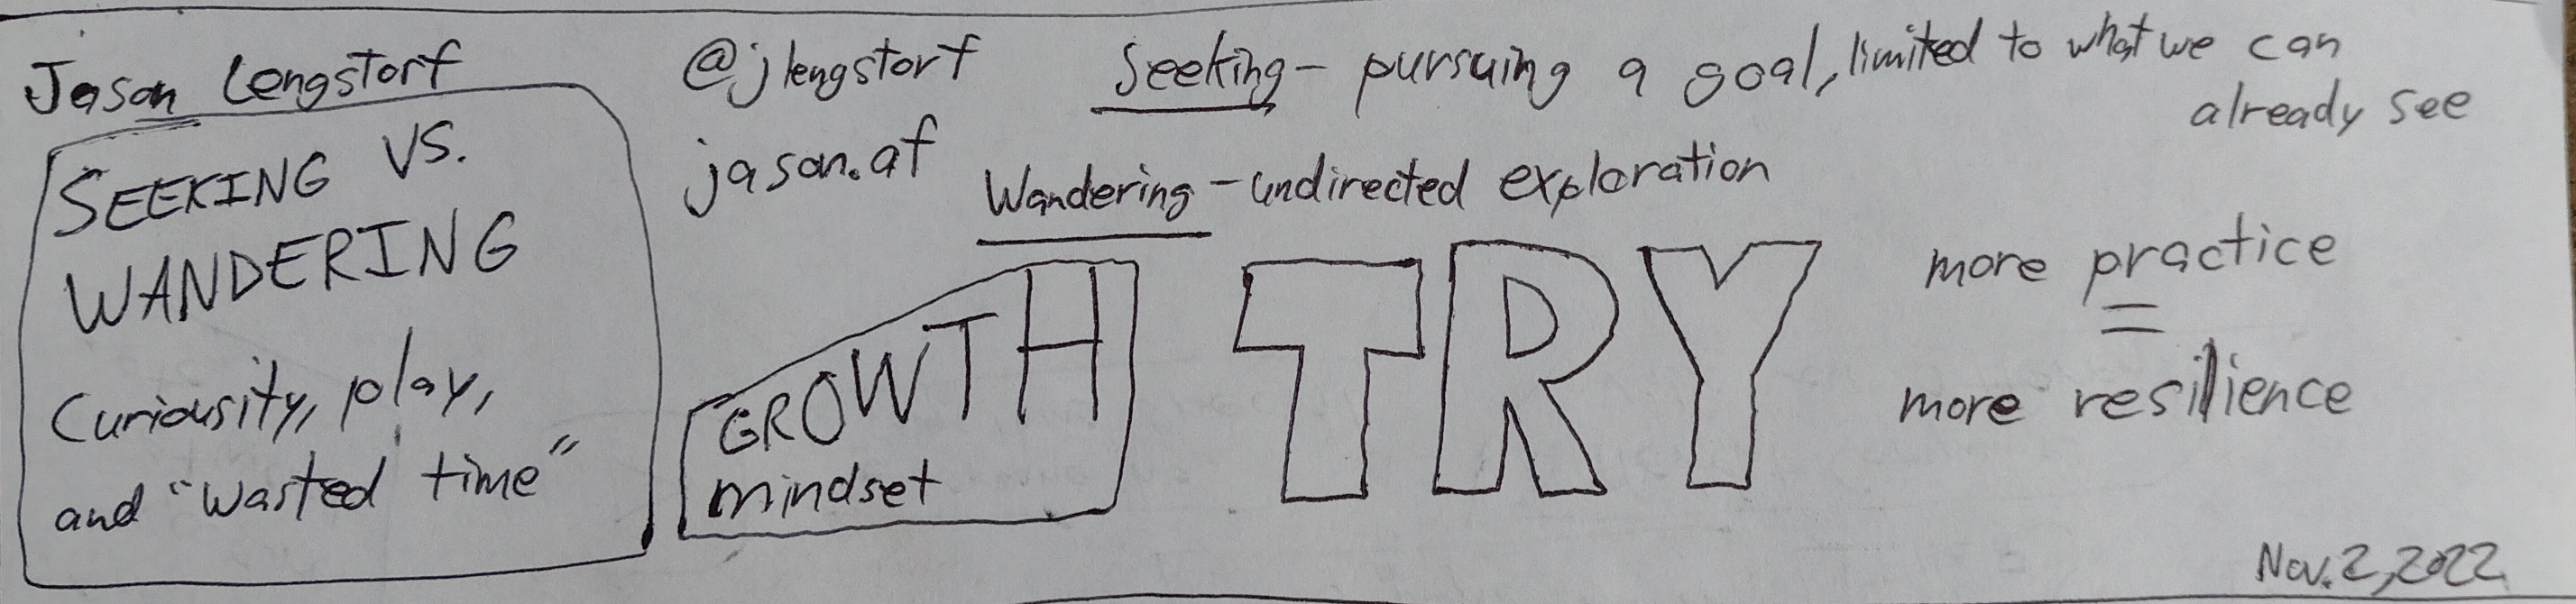 Jason Lengstorf
SEEKING VS.
WANDERING
Curiousity, play,
and "wasted time"
@jlengstorf
jason.af
Seeking - pursuing a goal, limited to what we can
already see
Wandering - undirected exploration
GROWTH
mindset
TRY
more practice
=
more resilience
Nov. 2, 2022